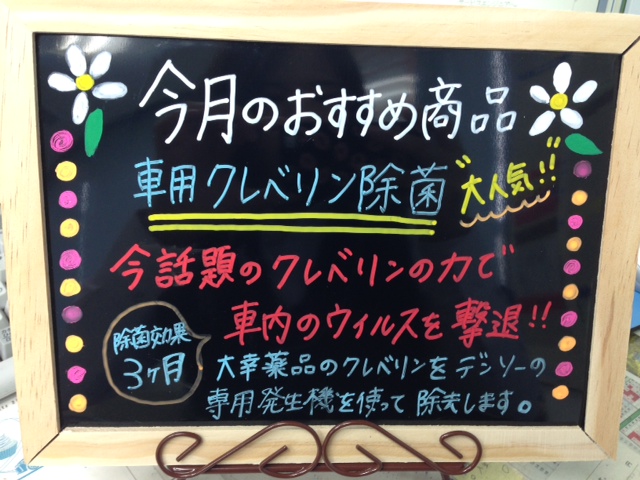 今月のおすすめ商品
車用クレベリン除菌
"大人気!!"
今話題のクレベリンの力で
車内のウイルスを撃退!!
除菌効果
3ヶ月
大幸薬品のクレベリンをデンソーの
専用発生機を使って除去します。